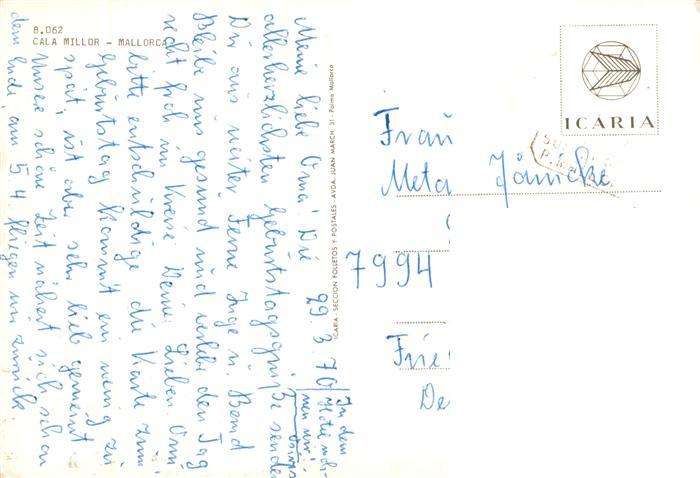 8.062
CALA MILLOR - MALLORCA
29.3.70
Meine liebe Oma! Die
allerherzlichsten Geburtstagsgrüße senden
Dir aus weiter Ferne Inge u. Bernd
Bleibe uns gesund und verlebe den Tag
recht froh im Kreise Deiner Lieben. Omi,
bitte entschuldige die Karte zum
Geburtstag kommt ein wenig zu
spät, ist aber sehr lieb gemeint.
Unsere schöne Zeit nähert sich schon
dem Ende, am 5.4. fliegen wir zurück.
In dem
Hotel woh-
nen wir!
ICARIA - SECCION FOLLETOS Y POSTALES - AVDA. JUAN MARCH, 31 - Palma Mallorca
ICARIA
Frau
Meta Jänicke
7994
Frie
De